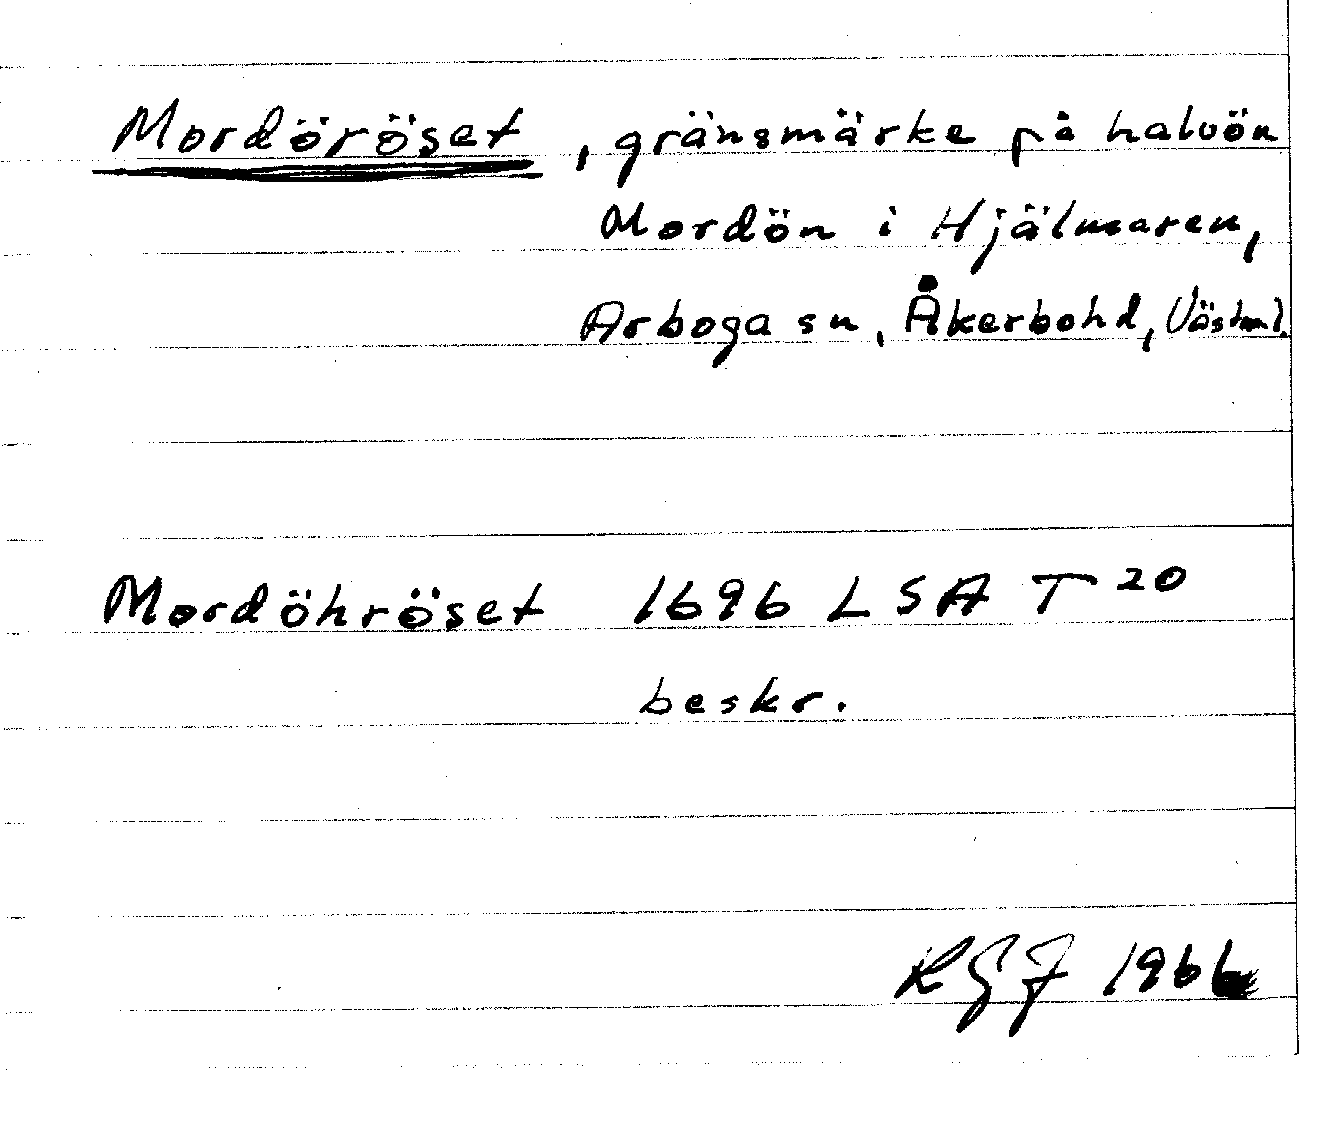 Mordöröset, gränsmärke på halvön
Mordön i Hjälmaren,
Arboga sn, Åkerbohd, Västml.
Mordöhröset 1696 LSA T 20
beskr.
KGJ 1966